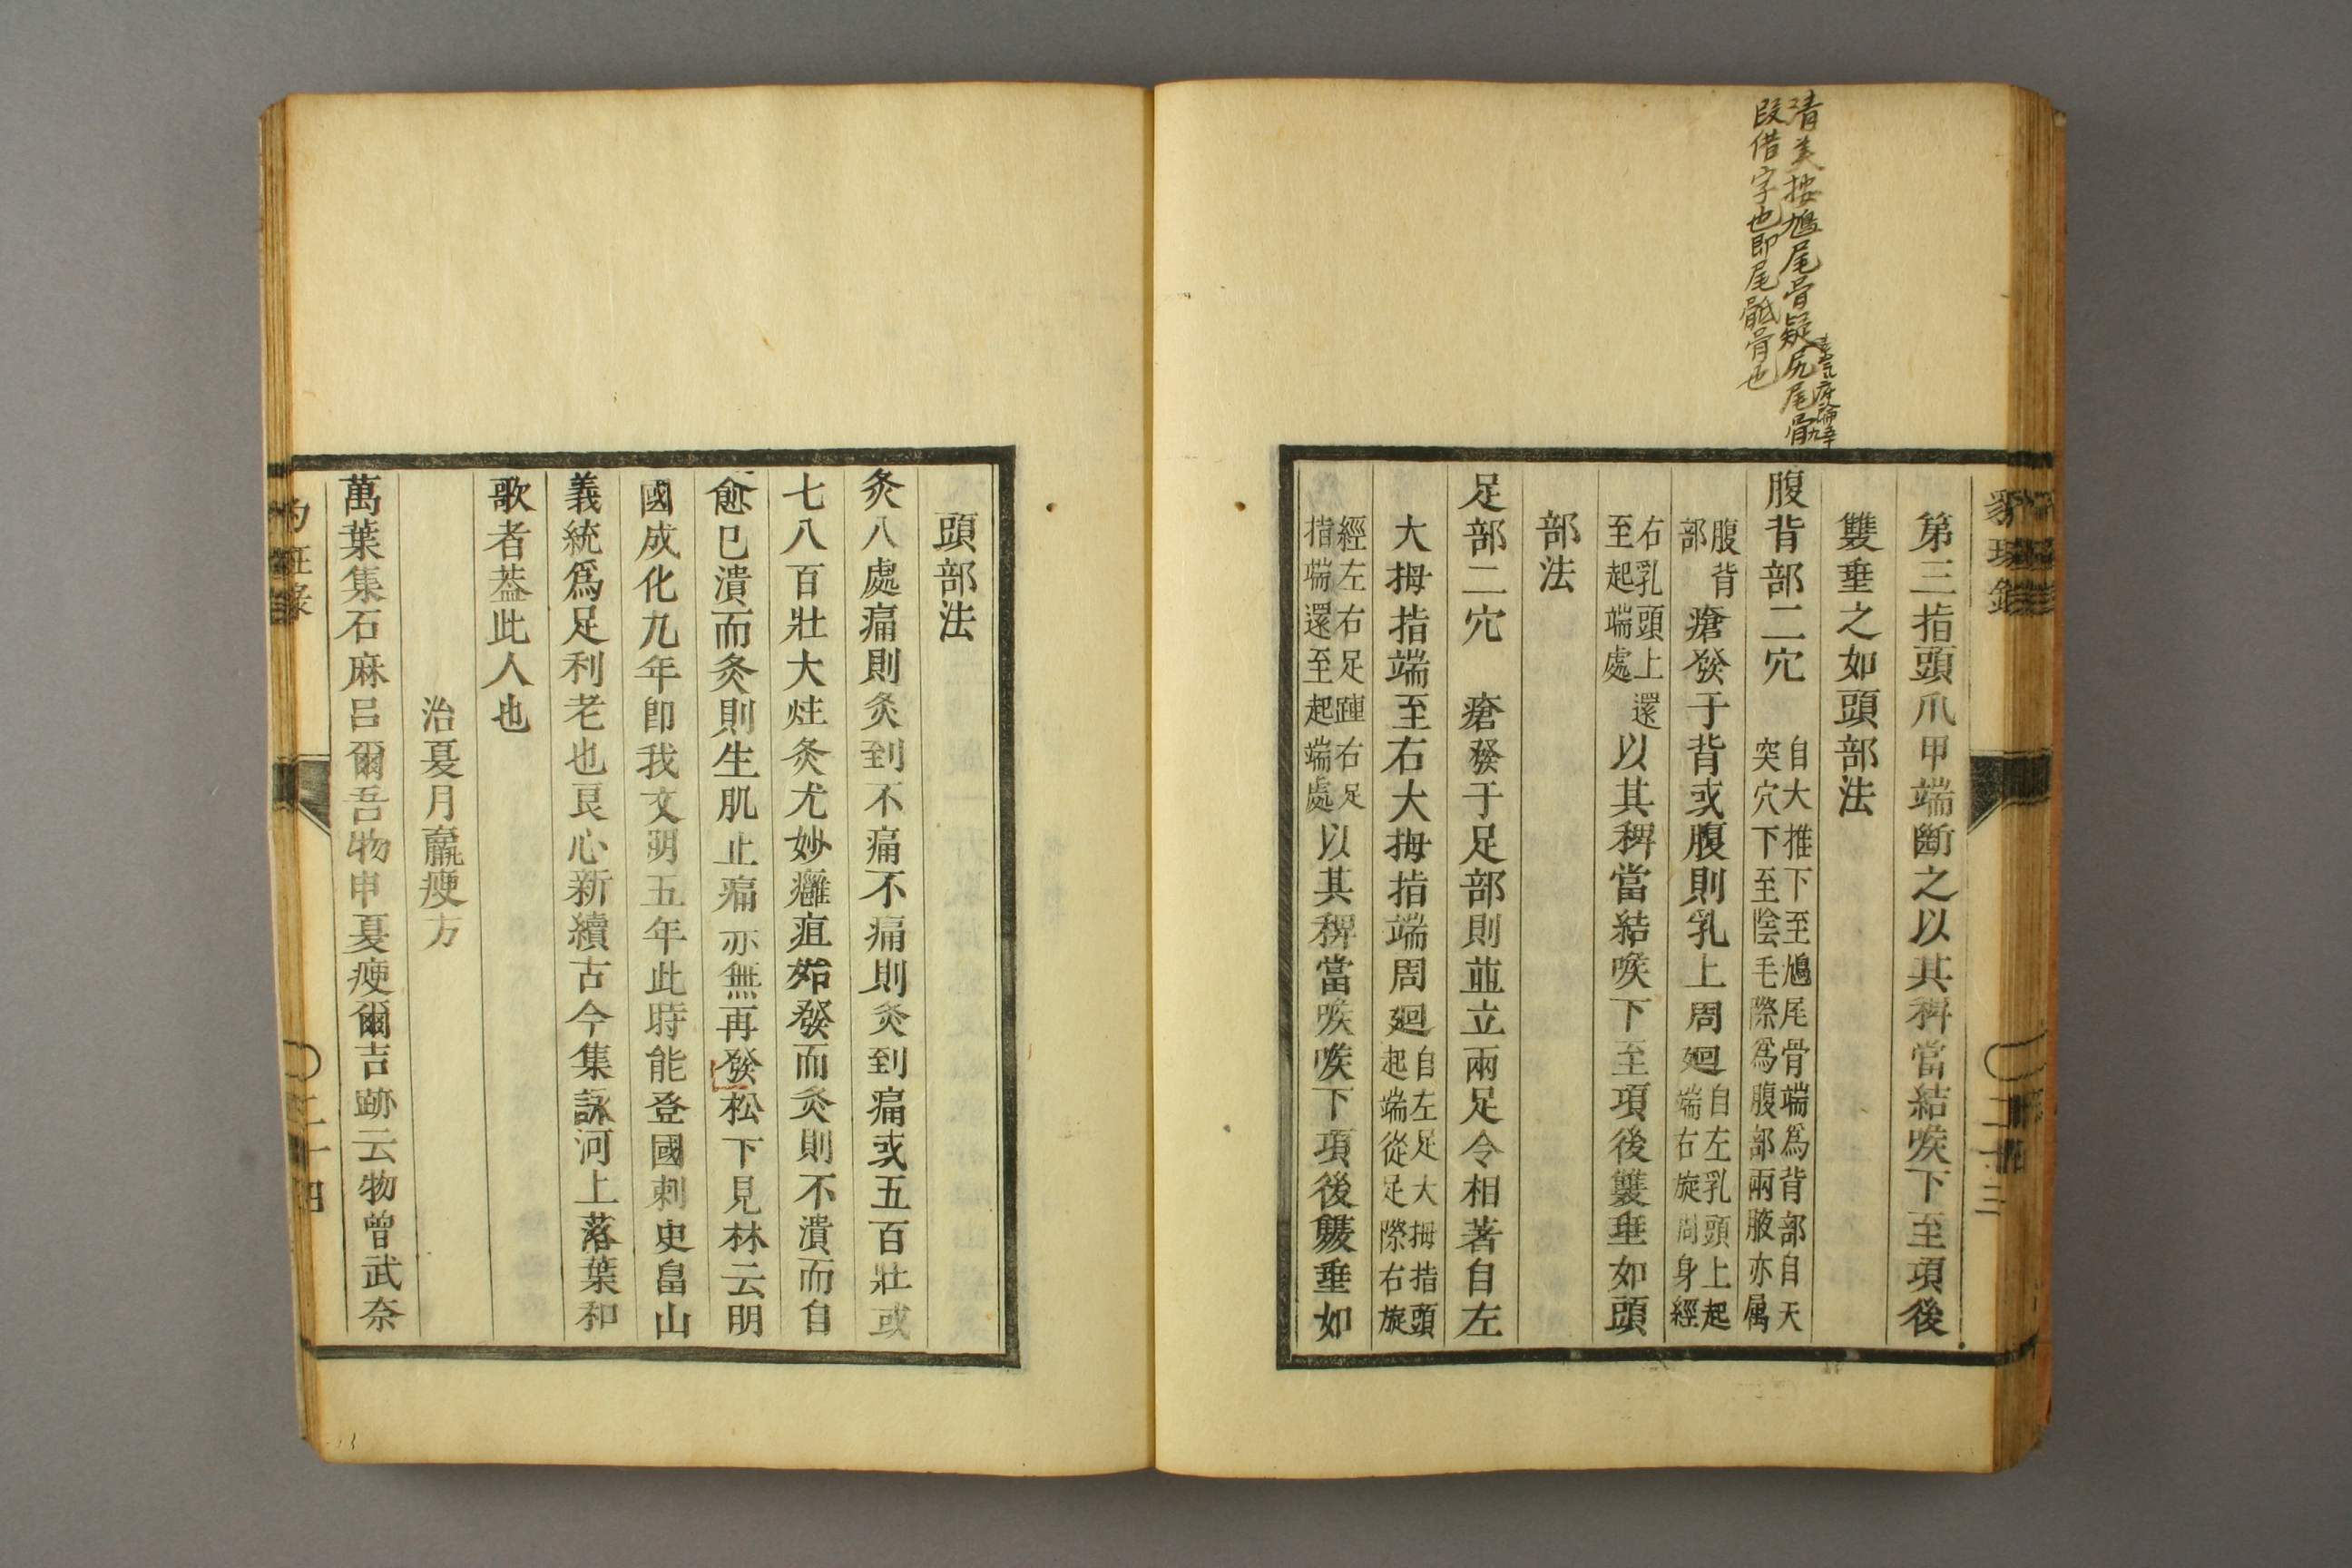 清美按鳩尾骨疑尻尾骨
叚借字也即尾骶骨也
第三指頭爪甲端斷之以其稗當結喉下至項後
雙垂之如頭部法
腹背部二穴 自大推下至鳩尾骨端為背部自天
突穴下至陰毛際為腹部兩腋亦属
腹背
部 瘡發于背或腹則乳上周廻 自左乳頭上起
端右旋周身經
右乳頭上還
至起端處 以其稗當結喉下至項後雙垂如頭
部法
足部二穴 瘡發于足部則並立兩足令相著自左
大拇指端至右大拇指端周廻 自左足大拇指頭
起端從足際右旋
經左右足踵右足
指端還至起端處 以其稗當喉下項後雙垂如
二十三
頭部法
灸八處痛則灸到不痛不痛則灸到痛或五百壯或
七八百壯大炷灸尤妙癰疽始發而灸則不潰而自
愈已潰而灸則生肌止痛亦無再發松下見林云明
國成化九年即我文明五年此時能登國刺史畠山
義統爲足利老也良心新續古今集詠河上落葉和
歌者葢此人也
治夏月羸瘦方
萬葉集石麻呂爾吾物申夏瘦爾吉跡云物曾武奈
二十四